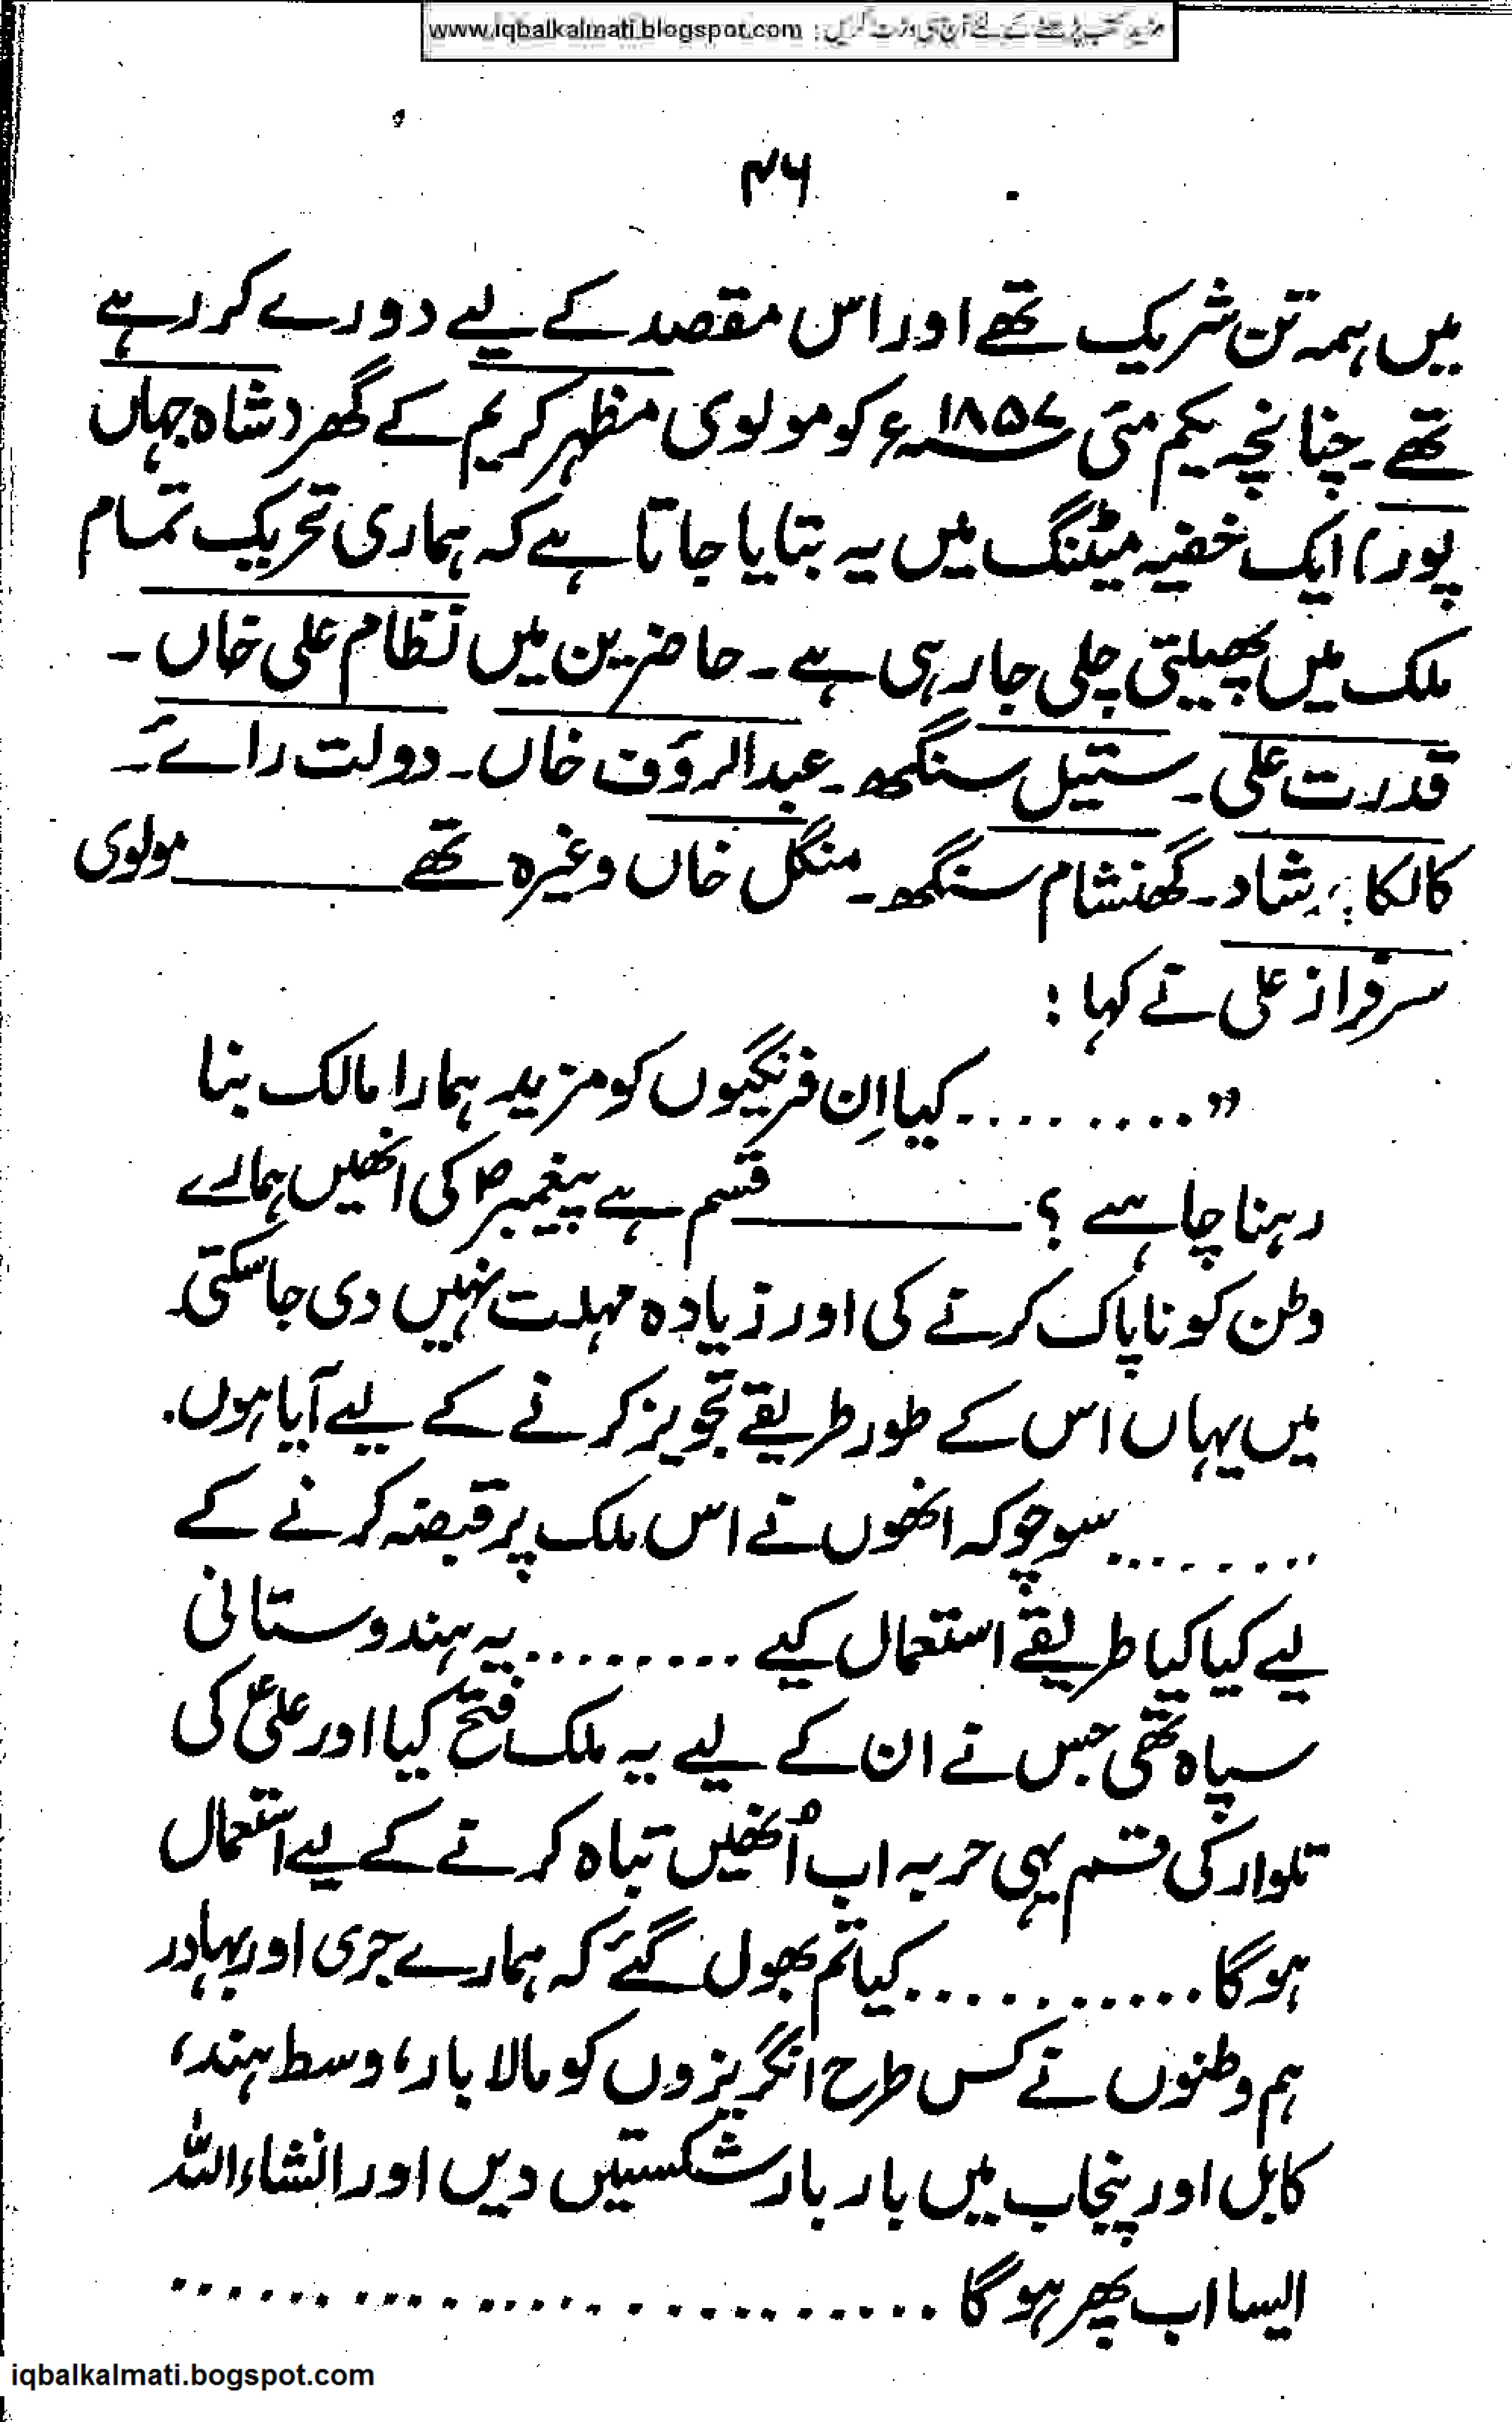 www.iqbalkalmati.blogspot.com : مزید کتب پڑھنے کے لئے آج ہی وزٹ کریں
۴۶
میں ہمہ تن شریک تھے اور اس مقصد کے لیے دورے کر رہے
تھے۔ چنانچہ یکم مئی ۱۸۵۷ء کو مولوی مظہر کریم کے گھر (شاہ جہاں
پور) ایک خفیہ میٹنگ میں یہ بتایا جاتا ہے کہ ہماری تحریک تمام
ملک میں پھیلتی چلی جا رہی ہے۔ حاضرین میں نظام علی خاں۔
قدرت علی۔ ستیل سنگھ۔ عبدالرؤف خاں۔ دولت رائے۔
کالکا پرشاد۔ گھنشام سنگھ۔ منگل خاں وغیرہ تھے ــــــــ مولوی
سرفراز علی نے کہا :
”........ کیا اِن فرنگیوں کو مزید ہمارا مالک بنا
رہنا چاہیے ؟ ــــــــ قسم ہے پیغمبرؐ کی انھیں ہمارے
وطن کو ناپاک کرنے کی اور زیادہ مہلت نہیں دی جا سکتی۔
میں یہاں اس کے طور طریقے تجویز کرنے کے لیے آیا ہوں.
........ سوچو کہ انھوں نے اس ملک پر قبضہ کرنے کے
لیے کیا کیا طریقے استعمال کیے ........ یہ ہندوستانی
سپاہ تھی جس نے ان کے لیے یہ ملک فتح کیا اور علیؑ کی
تلوار کی قسم یہی حربہ اب اُنھیں تباہ کرنے کے لیے استعمال
ہوگا .......... کیا تم بھول گئے کہ ہمارے جری اور بہادر
ہم وطنوں نے کس طرح انگریزوں کو مالا بار، وسط ہند،
کابل اور پنجاب میں بار بار شکستیں دیں اور انشاء اللہ
ایسا اب پھر ہوگا ........................
iqbalkalmati.bogspot.com